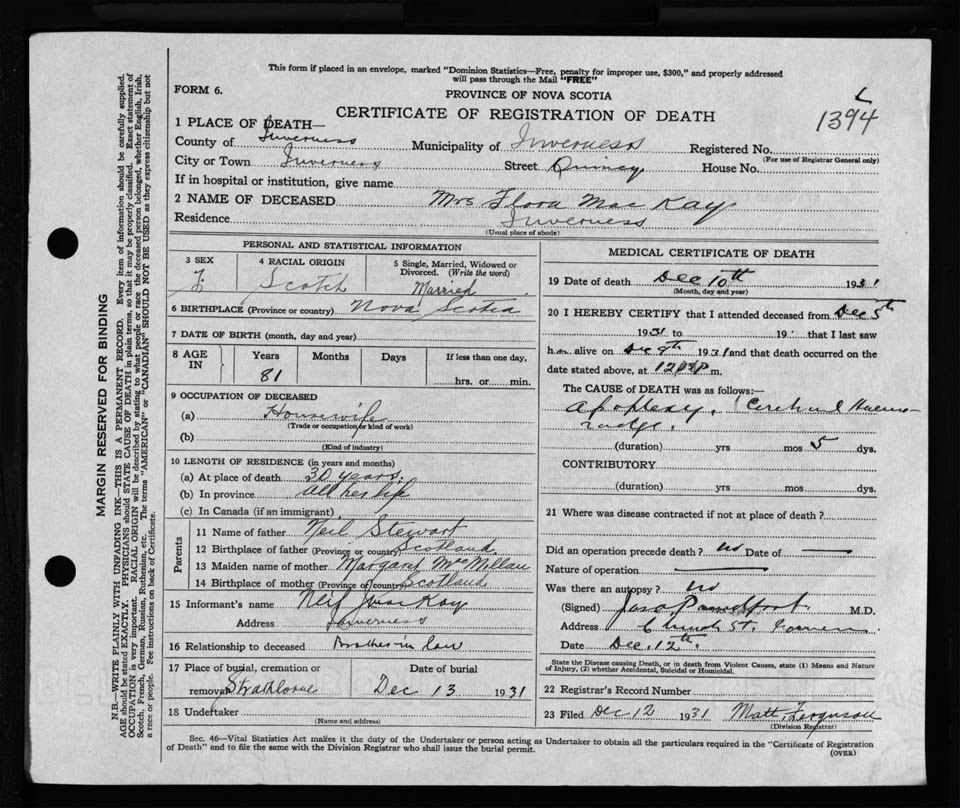 This form if placed in an envelope, marked "Dominion Statistics—Free, penalty for improper use, $300," and properly addressed
will pass through the Mail "FREE"
FORM 6.
PROVINCE OF NOVA SCOTIA
CERTIFICATE OF REGISTRATION OF DEATH
1394
1 PLACE OF DEATH—
County of Inverness Municipality of Inverness Registered No.
(For use of Registrar General only)
City or Town Inverness Street Quincy House No.
If in hospital or institution, give name
2 NAME OF DECEASED Mrs Flora Mac Kay
Residence Inverness
(Usual place of abode)
PERSONAL AND STATISTICAL INFORMATION
3 SEX
F.
4 RACIAL ORIGIN
Scotch
5 Single, Married, Widowed or
Divorced. (Write the word)
Married
6 BIRTHPLACE (Province or country) Nova Scotia
7 DATE OF BIRTH (month, day and year)
8 AGE
IN
Years
81
Months
Days
If less than one day,
hrs. or min.
9 OCCUPATION OF DECEASED
(a) Housewife
(Trade or occupation or kind of work)
(b)
(Kind of industry)
10 LENGTH OF RESIDENCE (in years and months)
(a) At place of death 30 years.
(b) In province all her life
(c) In Canada (if an immigrant)
Parents
11 Name of father Neil Stewart
12 Birthplace of father (Province or country) Scotland
13 Maiden name of mother Margaret McMillan
14 Birthplace of mother (Province or country) Scotland
15 Informant's name Neil Mac Kay
Address Inverness
16 Relationship to deceased Brother in law
17 Place of burial, cremation or
removal Strathlorne
Date of burial
Dec 13 1931
18 Undertaker
(Name and address)
MEDICAL CERTIFICATE OF DEATH
19 Date of death Dec 10th 1931
(Month, day and year)
20 I HEREBY CERTIFY that I attended deceased from Dec 5th
1931 to 19 that I last saw
h alive on Dec 9th 1931 and that death occurred on the
date stated above, at m.
The CAUSE of DEATH was as follows:—
Apoplexy. (Cerebral Haemo-
(duration) yrs mos 5 dys.
CONTRIBUTORY
(duration) yrs mos dys.
21 Where was disease contracted if not at place of death?
Did an operation precede death? no Date of —
Nature of operation —
Was there an autopsy? no
(Signed) M.D.
Address Church St.
Date Dec. 12th
State the Disease causing Death, or in death from Violent Causes, state (1) Means and Nature
of Injury, (2) whether Accidental, Suicidal or Homicidal.
22 Registrar's Record Number
23 Filed Dec 12 1931 Matt Ferguson
(Division Registrar)
Sec. 46—Vital Statistics Act makes it the duty of the Undertaker or person acting as Undertaker to obtain all the particulars required in the "Certificate of Registration
of Death" and to file the same with the Division Registrar who shall issue the burial permit.
(OVER)
MARGIN RESERVED FOR BINDING
N.B.—WRITE PLAINLY WITH UNFADING INK—THIS IS A PERMANENT RECORD. Every item of information should be carefully supplied.
AGE should be stated EXACTLY. PHYSICIANS should STATE CAUSE OF DEATH in plain terms, so that it may be properly classified. Exact statement of
OCCUPATION is very important. RACIAL ORIGIN will be described by stating to what people or race the deceased person belonged, whether English, Irish,
Scotch, French, German, Russian, Ruthenian, etc. The terms "AMERICAN" or "CANADIAN" SHOULD NOT BE USED as they express citizenship but not
a race or people. See instructions on back of Certificate.